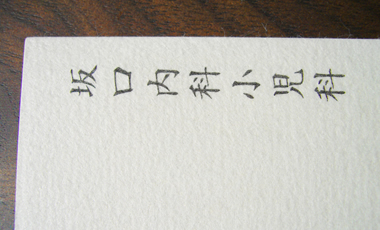 坂口内科小児科